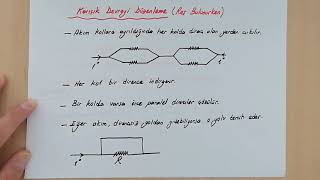 Karışık Devreyi Düzenleme (Reş Bulunurken)
- Akım kollara ayrıldığında her kolda direnç olan yerden çıkılır.
i
- Her kol bir dirence indirgenir.
- Bir kolda varsa önce paralel dirençler çözülür.
- Eğer akım, dirençsiz yoldan gidebiliyorsa o yolu tercih eder.
i
R